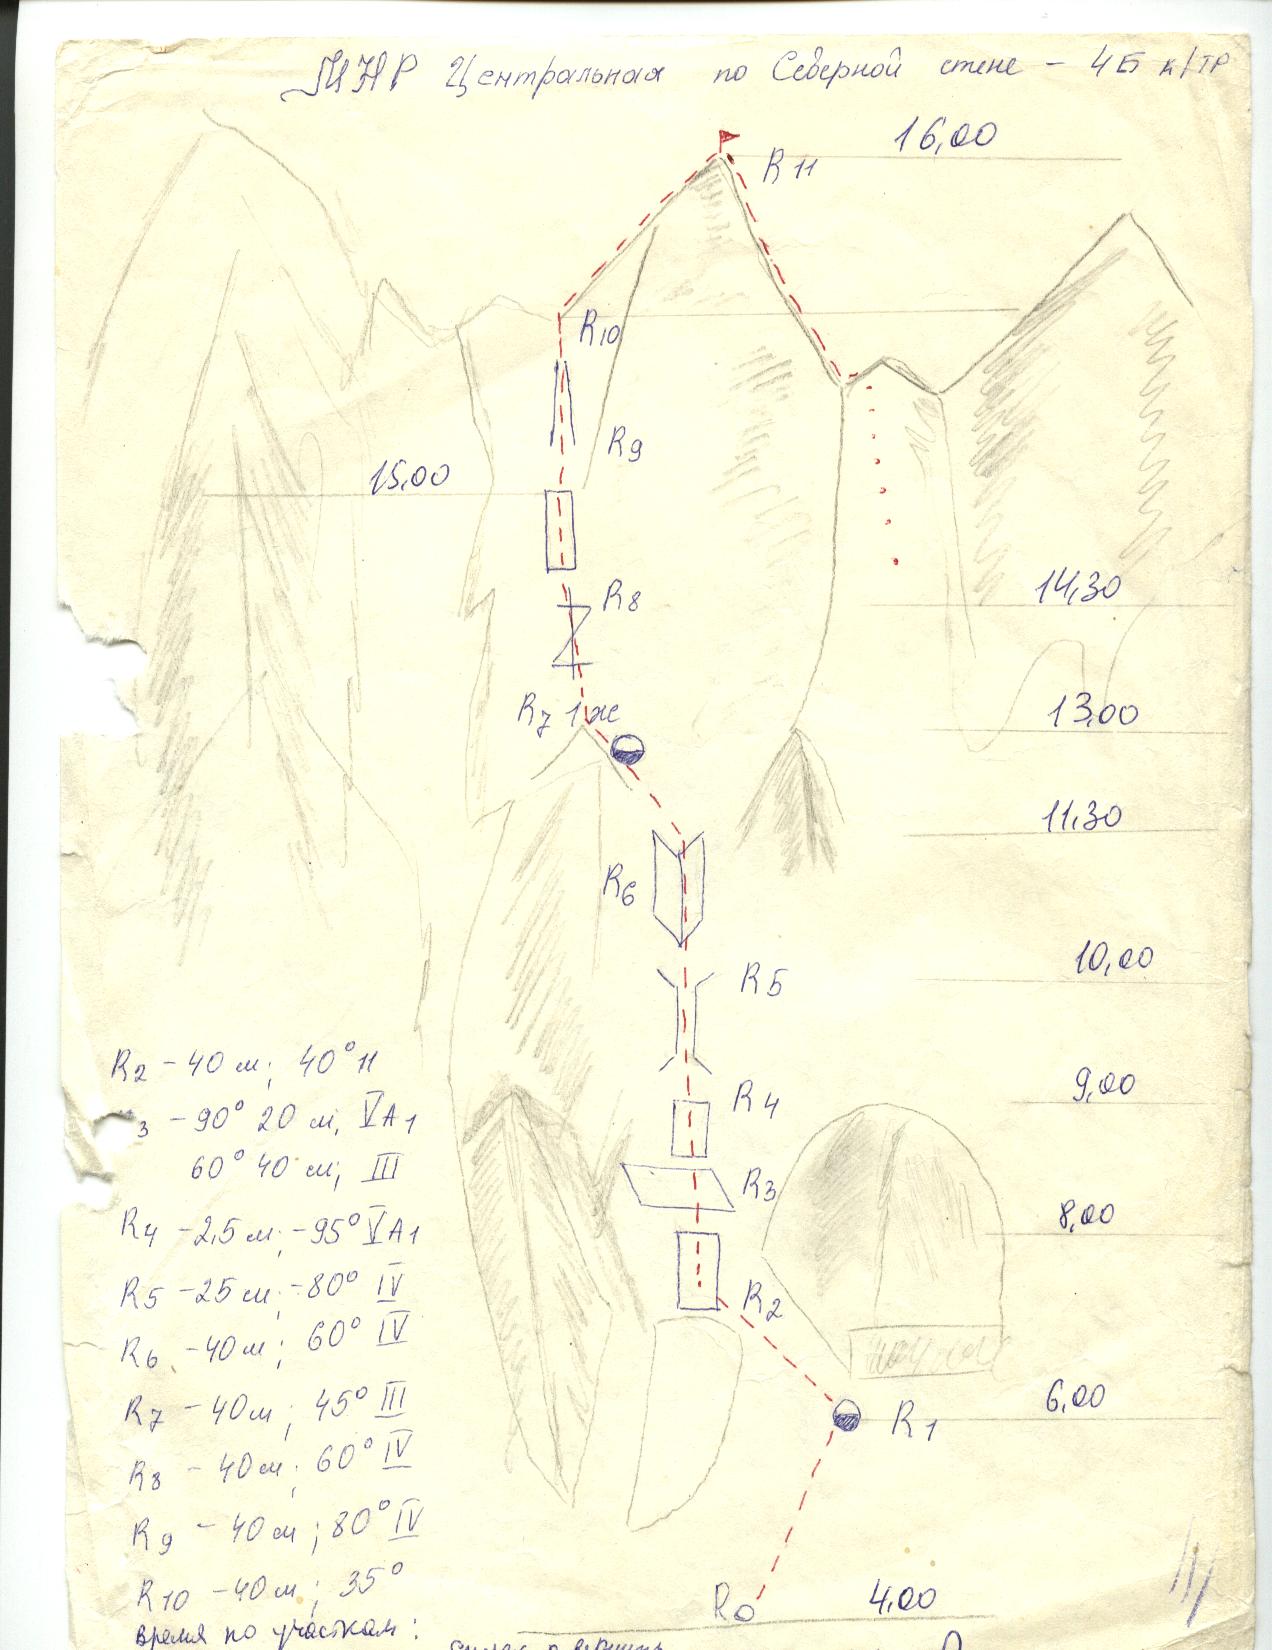 МНР Центральная по Северной стене – 4Б к/тр
16,00
R11
R10
R9
15,00
R8
14,30
R7 1ж
13,00
11,30
R6
10,00
R5
9,00
R4
R3
8,00
R2
6,00
R1
R0
4,00
R2 – 40 м; 40° II
3 – 90° 20 м, V A1
60° 40 м, III
R4 – 2,5 м; – 95° V A1
R5 – 25 м; – 80° IV
R6 – 40 м; 60° IV
R7 – 40 м; 45° III
R8 – 40 м; 60° IV
R9 – 40 м; 80° IV
R10 – 40 м; 35°
время по участкам: